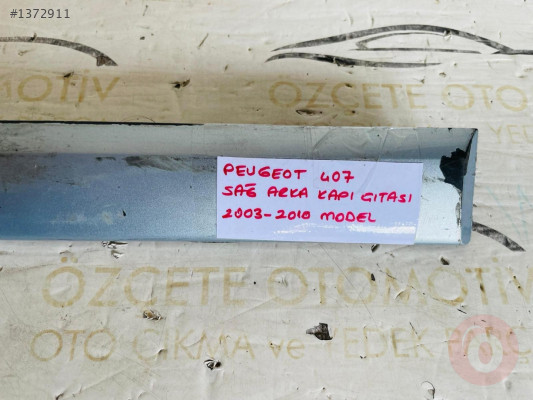 #1372911
OTİV
ÖZÇETE OTO
YEDE
PEUGEOT 407
SAĞ ARKA KAPI CITASI
2003-2010 MODEL
ÖZÇETE OTOMOTİV
OTO ÇIKMA ve YEDEK PARÇ